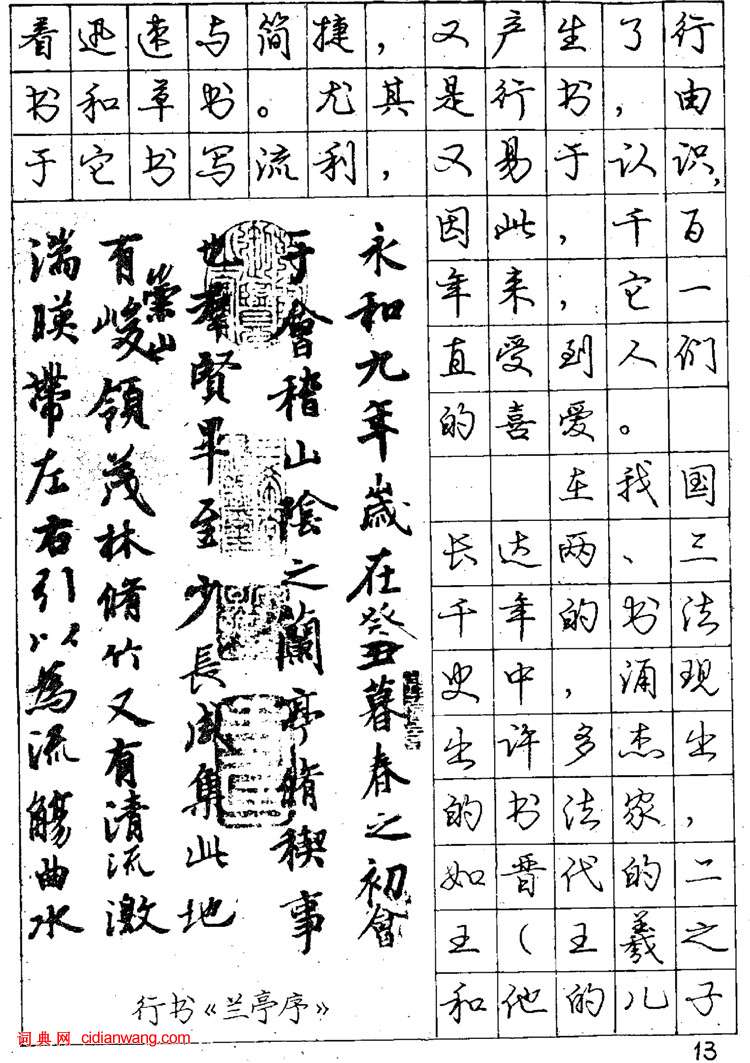 着迅速与简捷，又产生了行
书和草书。尤其是行书，由
于它书写流利，又易于认识，
因此，千百
年来，它一
直受到人们
的喜爱。
在我国
长达两、三
千年的书法
史中，涌现
出许多杰出
的书法家，
如晋代的二
王（王羲之
和他的儿子
永和九年歲在癸丑暮春之初會
于會稽山陰之蘭亭脩稧事
也羣賢畢至少長咸集此地
有崇山峻領茂林脩竹又有清流激
湍暎帶左右引以為流觴曲水
行书《兰亭序》
词典网 cidianwang.com
13